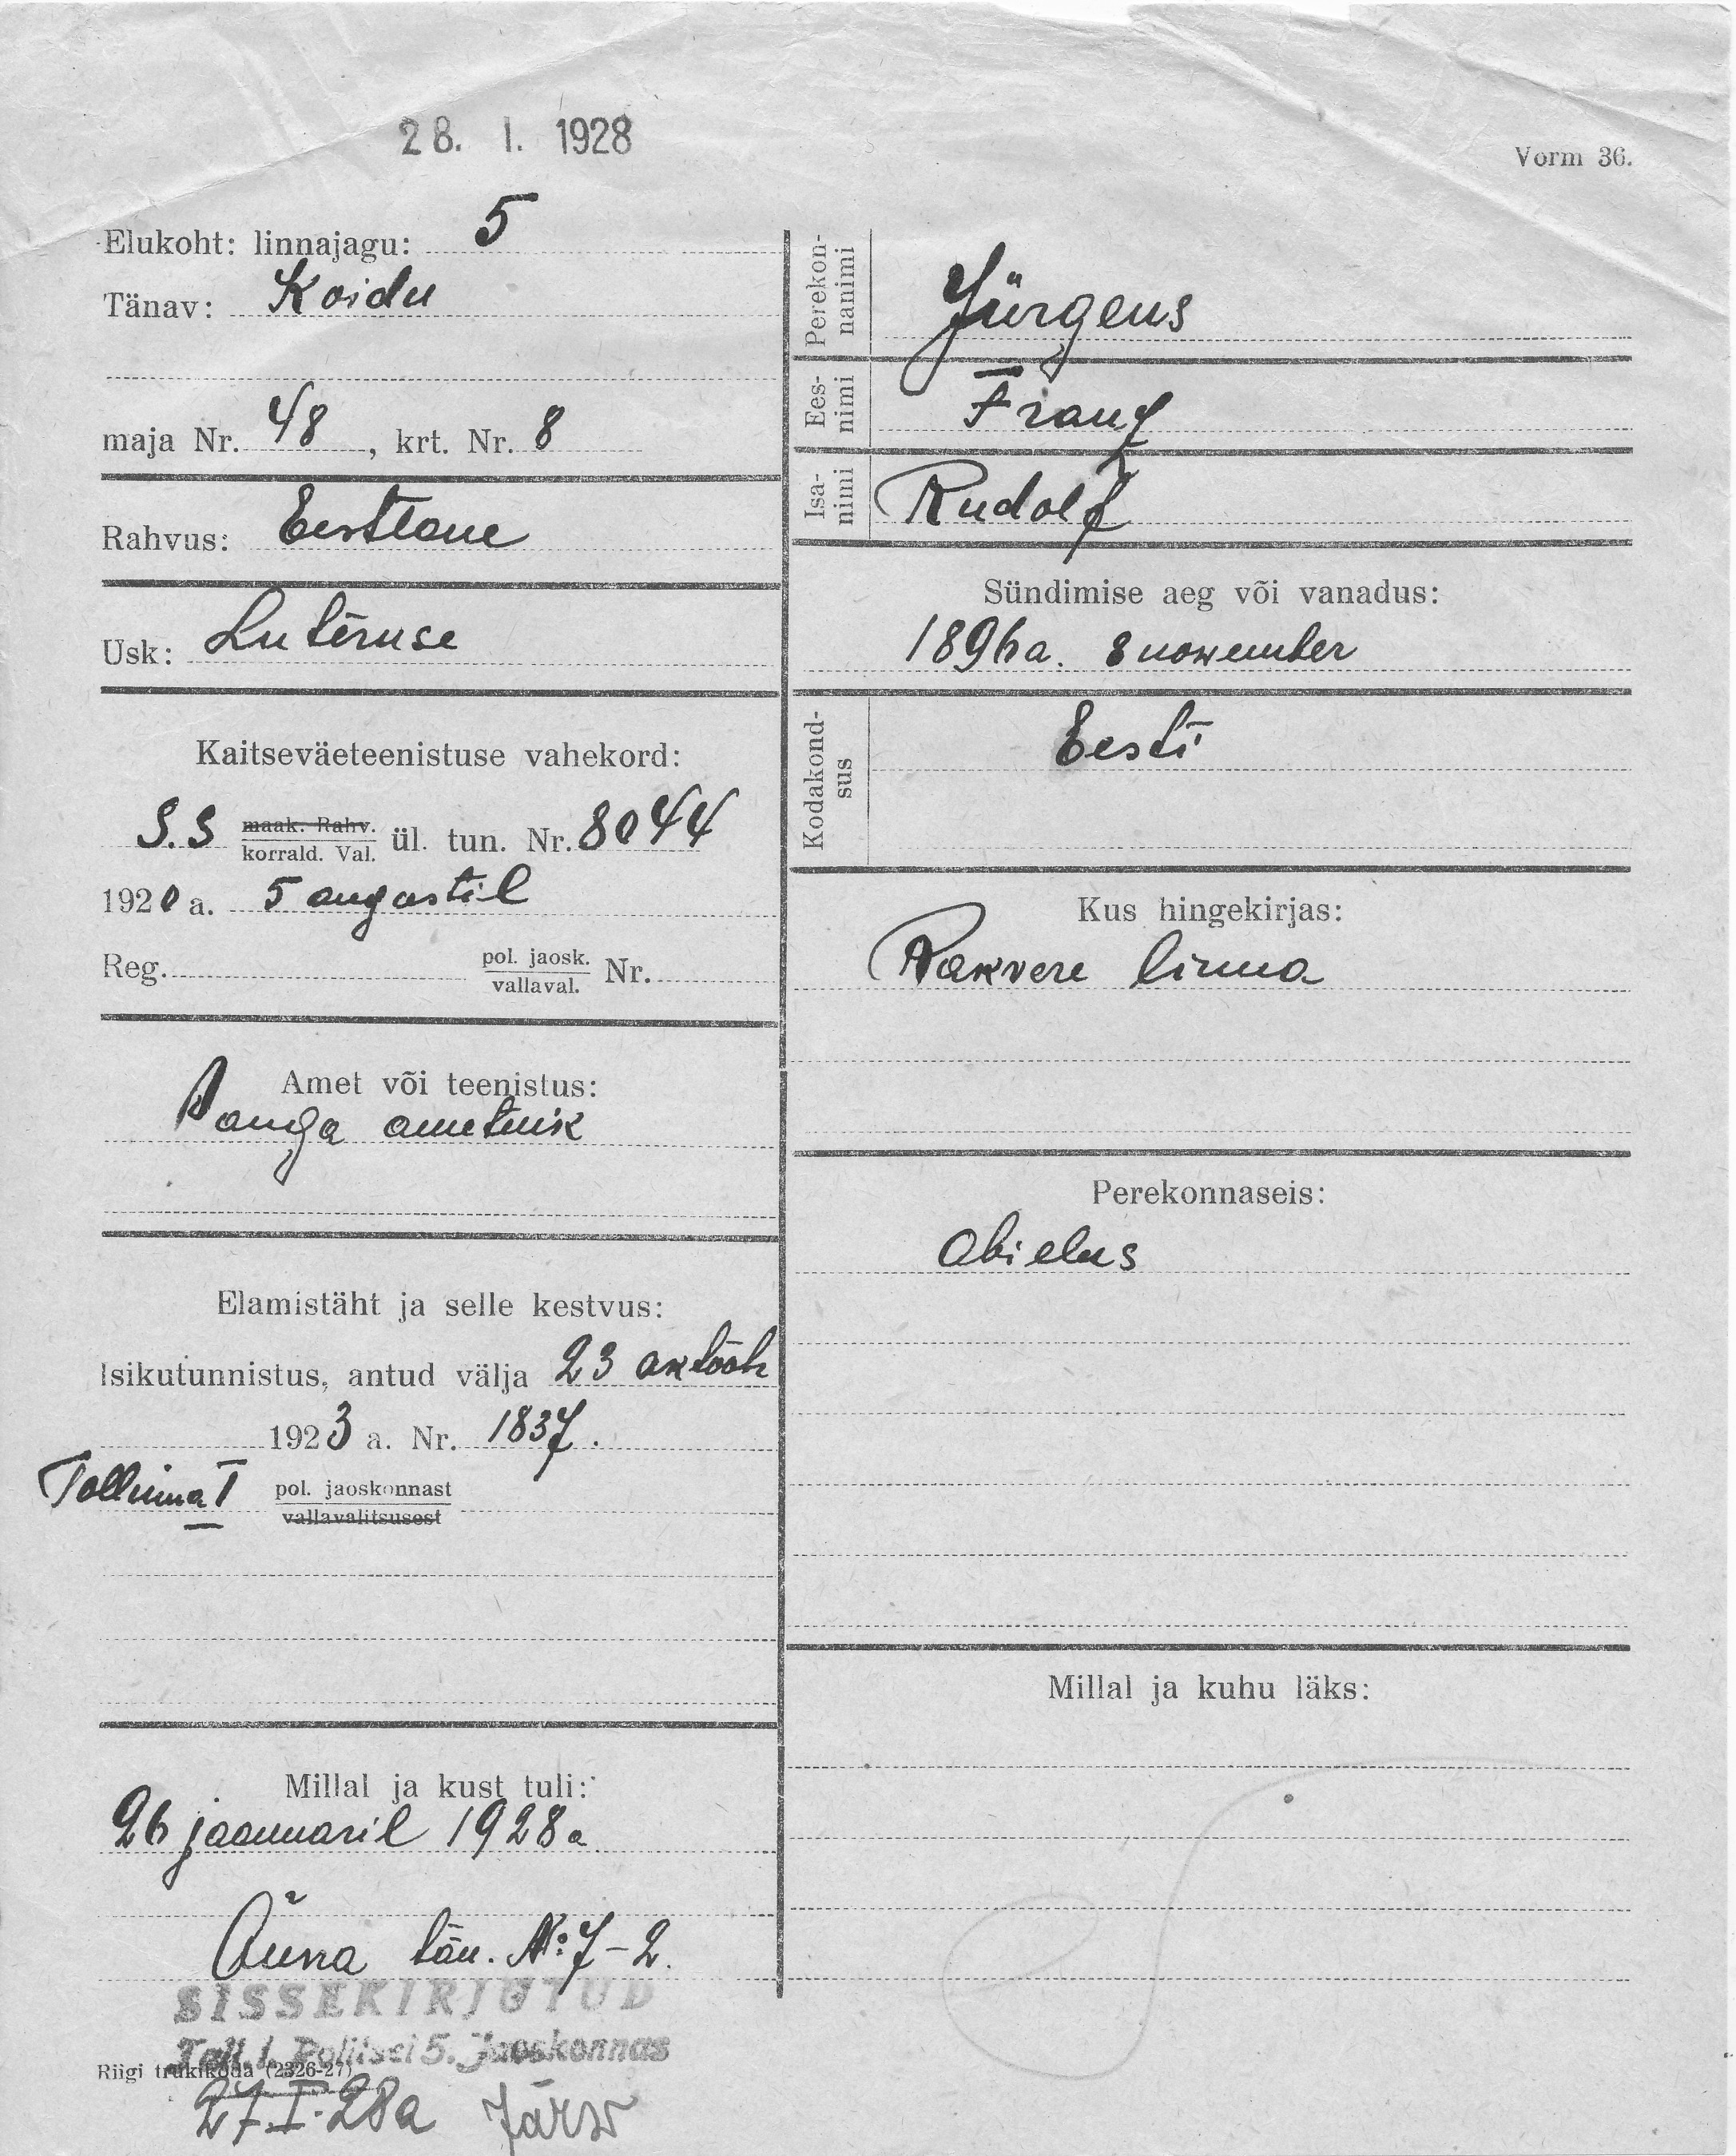 28. I. 1928
Vorm 36.
Elukoht: linnajagu: 5
Tänav: Koidu
maja Nr. 48, krt. Nr. 8
Rahvus: Eestlane
Usk: Luteruse
Kaitseväeteenistuse vahekord:
S.S maak. Rahv. korrald. Val. ül. tun. Nr. 8044
1920 a. 5 augustil
Reg. pol. jaosk. vallaval. Nr.
Amet või teenistus:
Panga ametnik
Elamistäht ja selle kestvus:
Isikutunnistus, antud välja 23 oktoob
1923 a. Nr. 1837.
Tallinna I pol. jaoskonnast
vallavalitsusest
Millal ja kust tuli:
26 jaanuaril 1928 a
tän. No: 7-2.
SISSEKIRJUTUD
Tall. l. Politsei 5. Jaoskonnas
Riigi trükikoda (2326-27)
27.I.28a Järw
Perekonnanimi Jürgens
Eesnimi Franz
Isanimi Rudolf
Sündimise aeg või vanadus:
1896 a. 8 nowember
Kodakondsus Eesti
Kus hingekirjas:
Rakvere linna
Perekonnaseis:
Abielus
Millal ja kuhu läks: